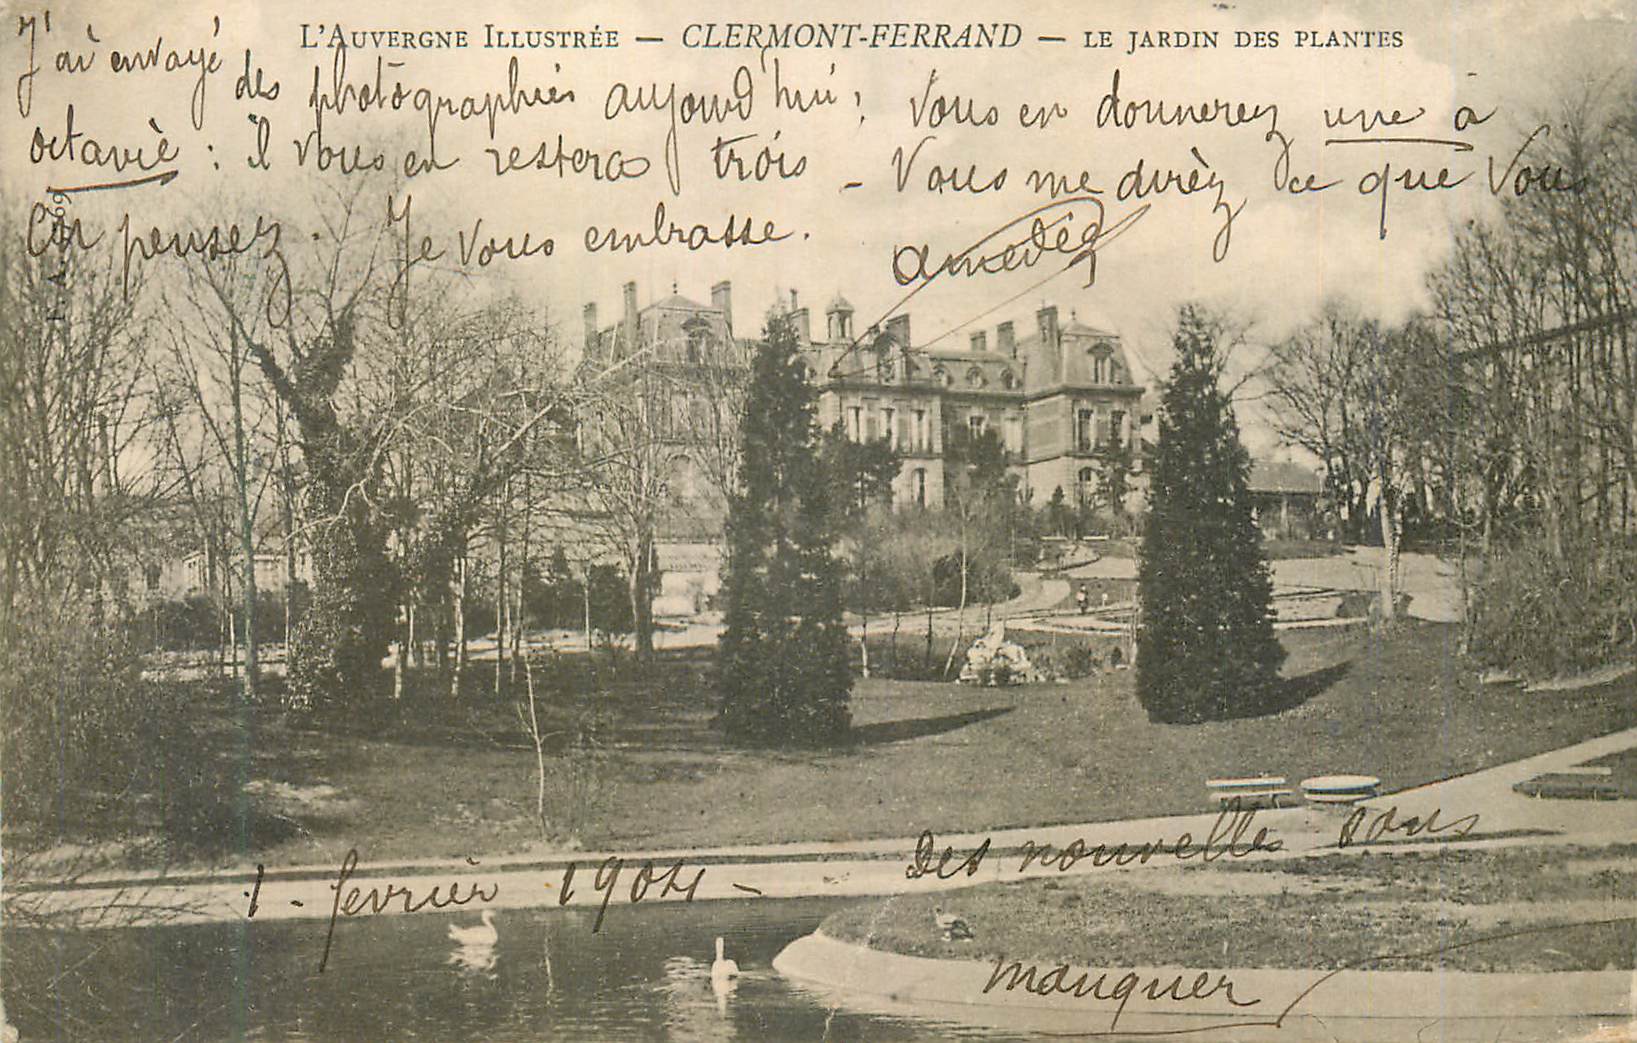 L'AUVERGNE ILLUSTRÉE — CLERMONT-FERRAND — LE JARDIN DES PLANTES
J'ai envoyé des photographies aujourd'hui; Vous en donnerez une à
octavie : il vous en restera trois - Vous me direz ce que Vous
en pensez. Je vous embrasse. Amédée
1 - fevrier 1904 -
Des nouvelles sans
manquer